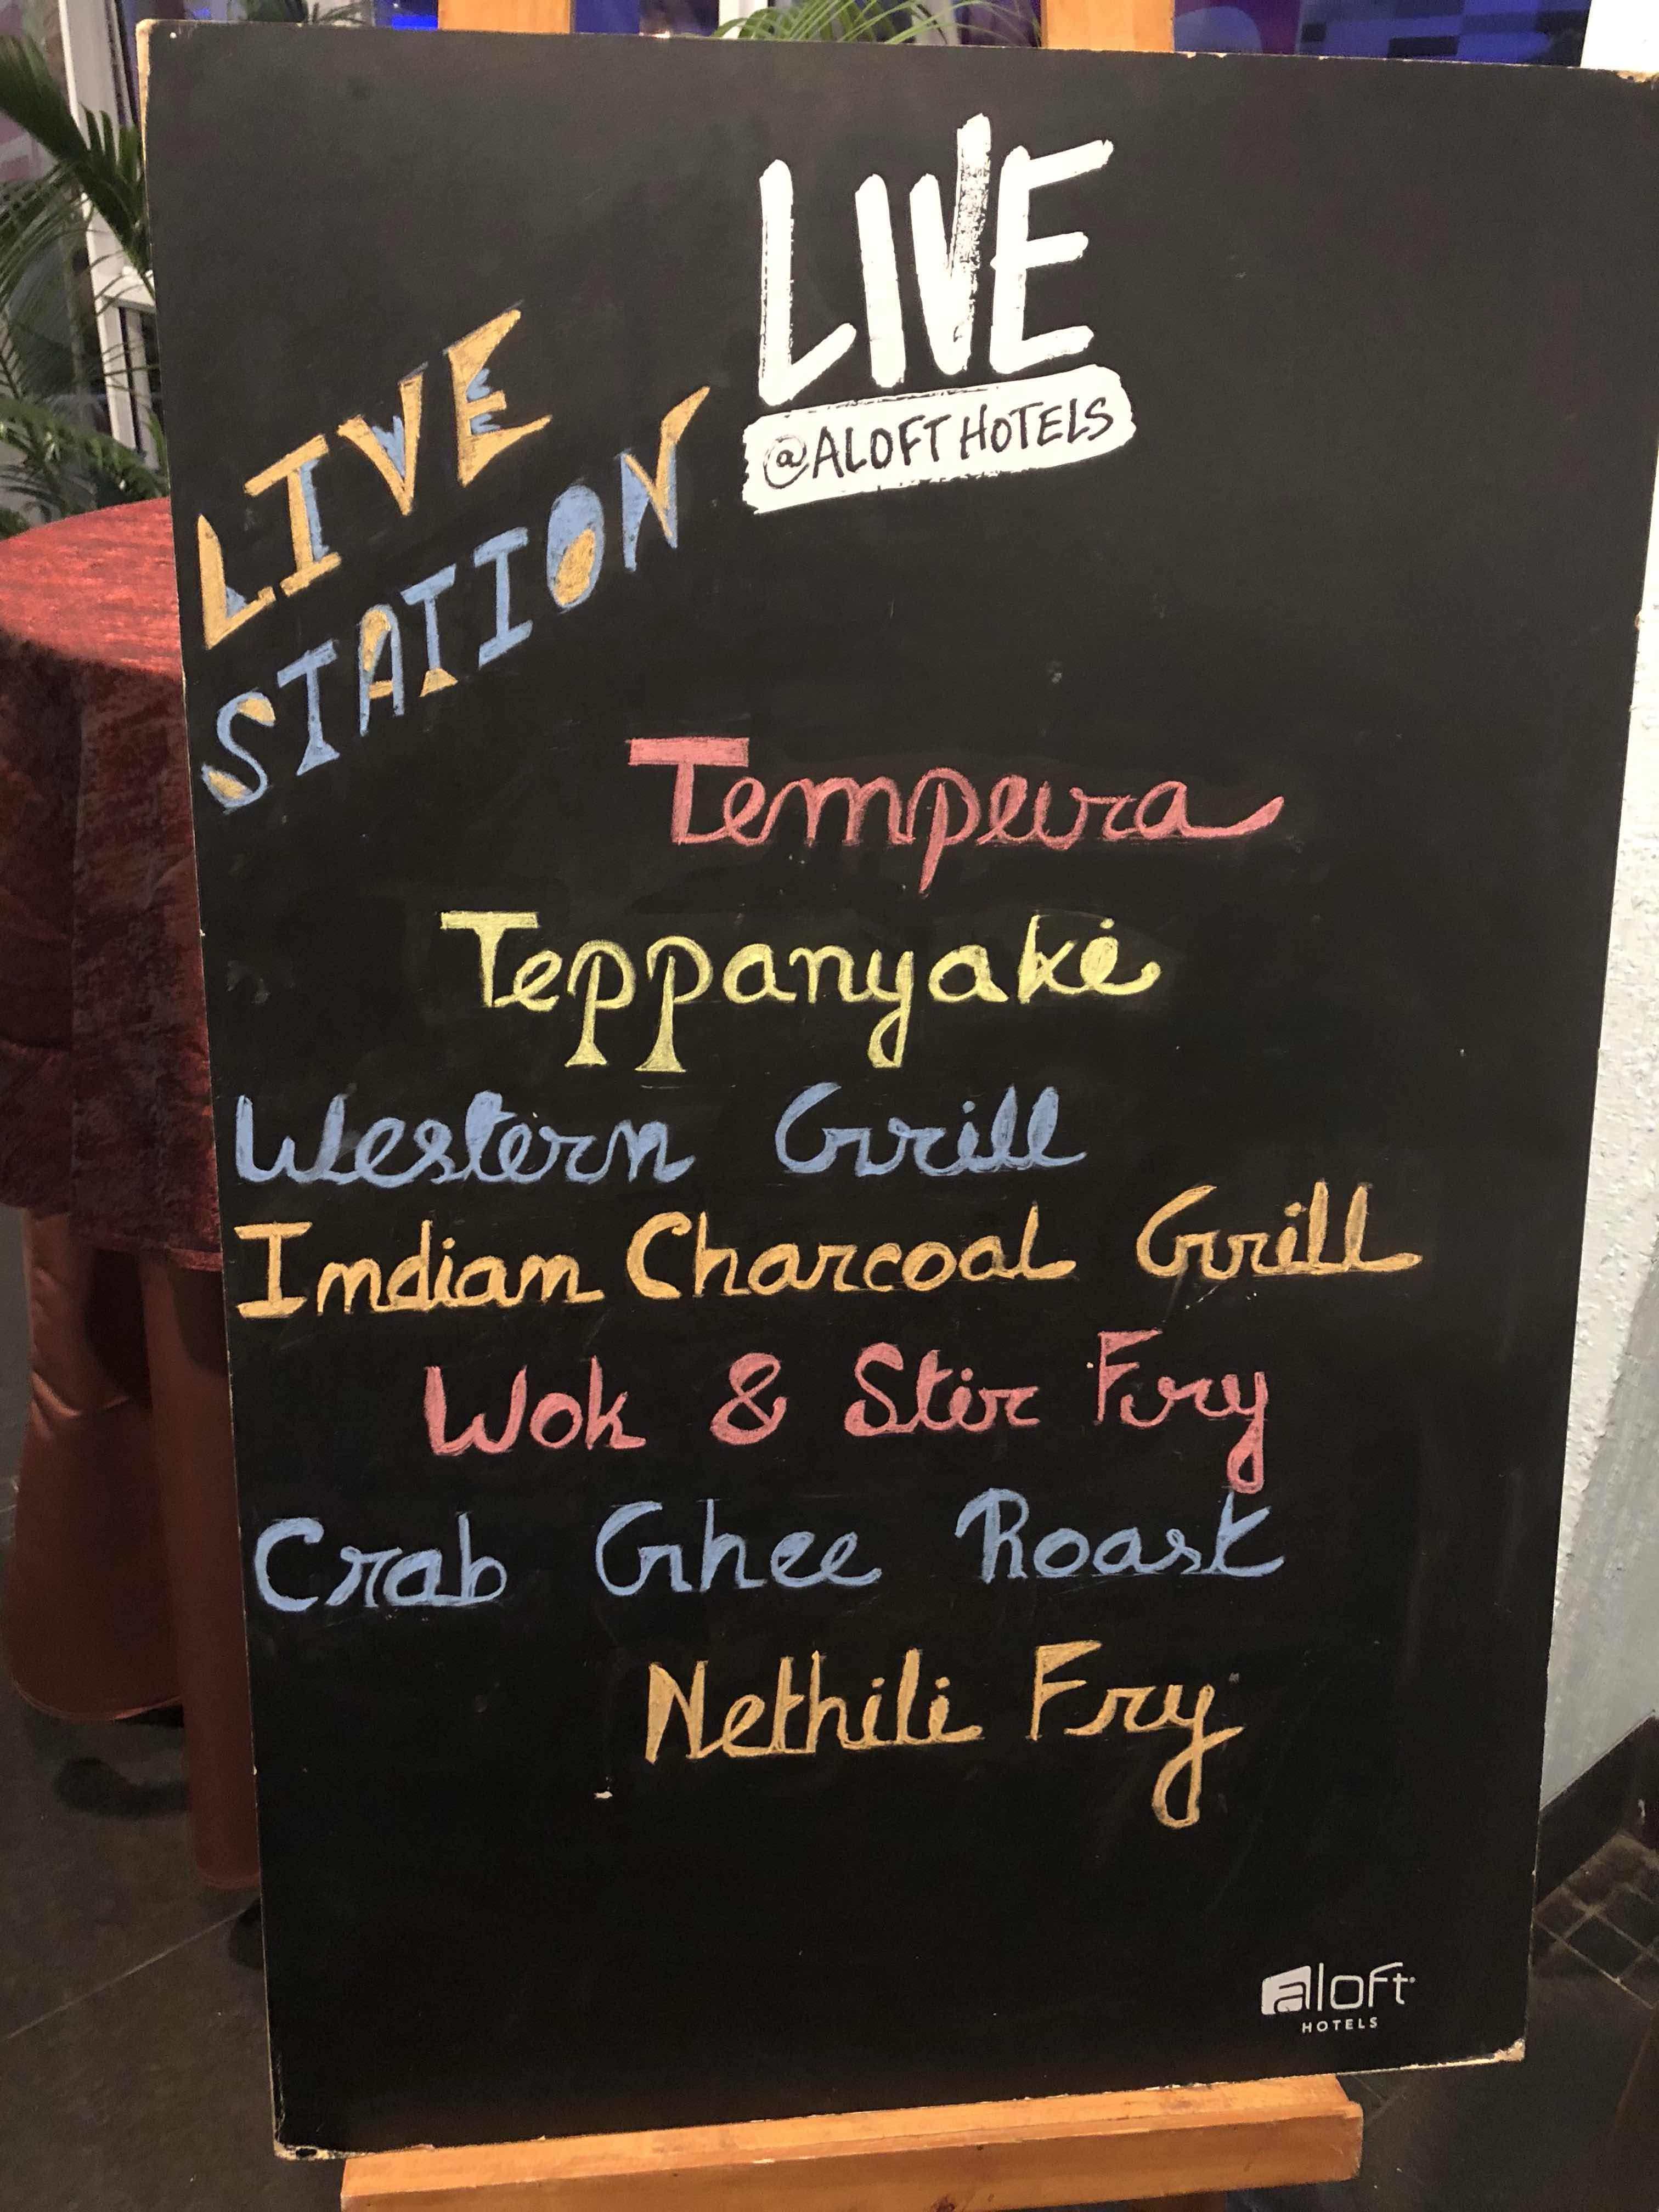 LIVE
@ALOFT HOTELS
LIVE
STATION
Tempura
Teppanyaki
Western Grill
Indian Charcoal Grill
Wok & Stir Fry
Crab Ghee Roast
Nethili Fry
aloft
HOTELS